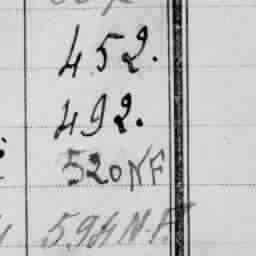 452.
492.
520 NF
594 N.F.